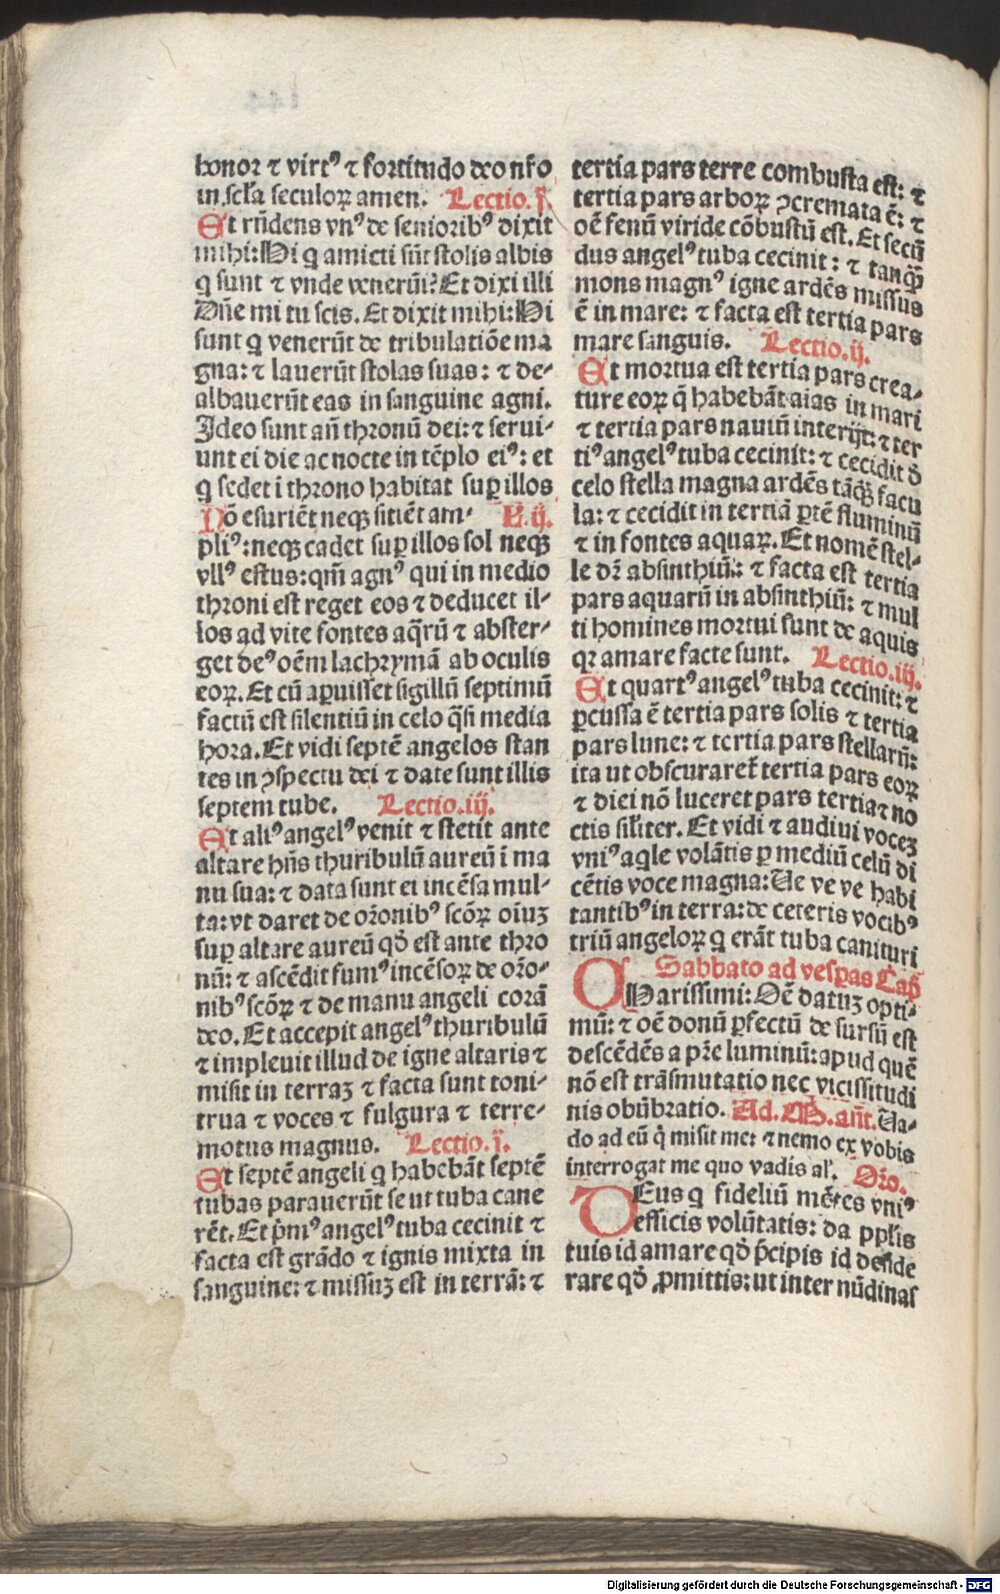 honor ⁊ virtꝰ ⁊ fortitudo deo nr̄o
in sc̄la seculoꝝ amen. Lectio.j̈.
Et rn̄dens vnꝰ de senioribꝰ dixit
mihi: Hi q̄ amicti sūt stolis albis
q̄ sunt ⁊ vnde venerūt? Et dixi illi
Dn̄e mi tu scis. Et dixit mihi: Hi
sunt q̄ venerūt de tribulatiōe ma
gna: ⁊ lauerūt stolas suas: ⁊ de-
albauerūt eas in sanguine agni.
Ideo sunt an̄ thronū dei: ⁊ serui-
unt ei die ac nocte in tēplo eiꝰ: et
q̄ sedet ī throno habitat suꝑ illos
Nō esuriēt neqꝫ sitiēt am- L.ij.
pliꝰ: neqꝫ cadet suꝑ illos sol neqꝫ
vllꝰ estus: qm̄ agnꝰ qui in medio
throni est reget eos ⁊ deducet il-
los ad vite fontes aq̄rū ⁊ abster-
get deꝰ oēm lachrymā ab oculis
eoꝝ. Et cū aꝑuisset sigillū septimū
factū est silentiū in celo q̄si media
hora. Et vidi septē angelos stan
tes in ꝯspectu dei ⁊ date sunt illis
septem tube. Lectio.iij.
Et aliꝰ angelꝰ venit ⁊ stetit ante
altare hn̄s thuribulū aureū ī ma
nu sua: ⁊ data sunt ei incēsa mul-
ta: vt daret de or̄onibꝰ scōꝝ oīuꝫ
suꝑ altare aureū qd̄ est ante thro
nū: ⁊ ascēdit fumꝰ incēsoꝝ de or̄o-
nibꝰ scōꝝ ⁊ de manu angeli corā
deo. Et accepit angelꝰ thuribulū
⁊ impleuit illud de igne altaris ⁊
misit in terraꝫ ⁊ facta sunt toni-
trua ⁊ voces ⁊ fulgura ⁊ terre-
motus magnus. Lectio.j̈.
Et septē angeli q̄ habebāt septē
tubas parauerūt se ut tuba cane
rēt. Et p̄mꝰ angelꝰ tuba cecinit ⁊
facta est grādo ⁊ ignis mixta in
sanguine: ⁊ missuꝫ est in terrā: ⁊
tertia pars terre combusta est: ⁊
tertia pars arboꝝ ꝯcremata ē: ⁊
oē fenū viride cōbustū est. Et secū
dus angelꝰ tuba cecinit: ⁊ tanqꝫ̄
mons magnꝰ igne ardēs missus
ē in mare: ⁊ facta est tertia pars
mare sanguis. Lectio.ij.
Et mortua est tertia pars crea-
ture eoꝝ q̄ habebāt aīas in mari
⁊ tertia pars nauiū interijt: ⁊ ter
tiꝰ angelꝰ tuba cecinit: ⁊ cecidit d̄
celo stella magna ardēs tāqꝫ̄ facu
la: ⁊ cecidit in tertiā ꝑtē fluminū
⁊ in fontes aquaꝝ. Et nomē stel-
le dr̄ absinthiū: ⁊ facta est tertia
pars aquarū in absinthiū: ⁊ mul
ti homines mortui sunt de aquis
qꝛ amare facte sunt. Lectio.iij.
Et quartꝰ angelꝰ tuba cecinit: ⁊
ꝑcussa ē tertia pars solis ⁊ tertia
pars lune: ⁊ tertia pars stellarū:
ita ut obscuraret̄ tertia pars eoꝝ
⁊ diei nō luceret pars tertia ⁊ no
ctis sil̄iter. Et vidi ⁊ audiui voceꝫ
vniꝰ aq̄le volātis ꝑ mediū celū di
cētis voce magna: Ve ve ve habi
tantibꝰ in terra: de ceteris vocibꝰ
triū angeloꝝ q̄ erāt tuba canituri
Sabbato ad vesꝑas Cap̄
CHarissimi: Oē datuꝫ opti-
mū: ⁊ oē donū ꝑfectū de sursū est
descēdēs a pr̄e luminū: apud quē
nō est trāsmutatio nec vicissitudi
nis obūbratio. Ad. M. an̄t. Va-
do ad eū q̄ misit me: ⁊ nemo ex vobis
interrogat me quo vadis al̄. Or̄o.
DEus q̄ fideliū mētes vniꝰ
efficis volūtatis: da ppl̄is
tuis id amare qd̄ p̄cipis id deside
rare qd̄ ꝓmittis: ut inter mūdanas